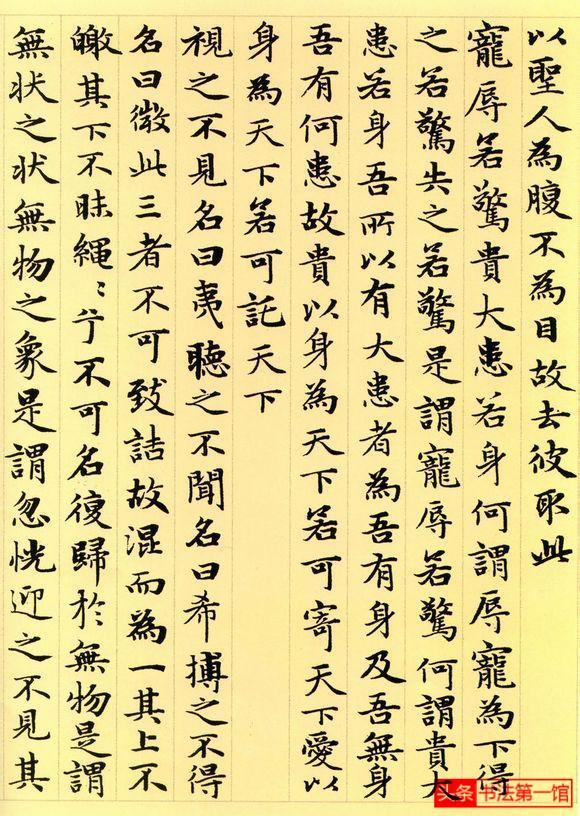 以聖人為腹不為目故去彼取此
寵辱若驚貴大患若身何謂辱寵為下得
之若驚失之若驚是謂寵辱若驚何謂貴大
患若身吾所以有大患者為吾有身及吾無身
吾有何患故貴以身為天下若可寄天下愛以
身為天下若可託天下
視之不見名曰夷聽之不聞名曰希搏之不得
名曰微此三者不可致詰故混而為一其上不
皦其下不昧繩〻兮不可名復歸於無物是謂
無狀之狀無物之象是謂忽恍迎之不見其
头条 书法第一馆